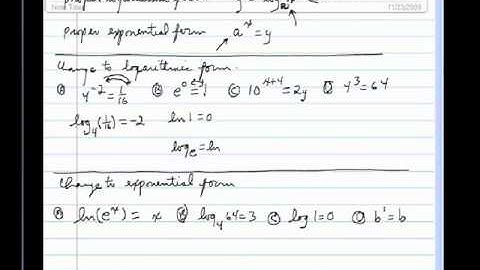 Note Title 11/23/2009
proper logarithmic form y = log
proper exponential form a^x = y
Change to logarithmic form.
Ⓐ 4^-2 = 1/16 Ⓑ e^0 = 1 Ⓒ 10^x+4 = 2y Ⓓ 4^3 = 64
log_4(1/16) = -2 ln 1 = 0
log_e = ln
Change to exponential form
Ⓐ ln(e^x) = x Ⓑ log_4 64 = 3 Ⓒ log 1 = 0 Ⓓ b^1 = b